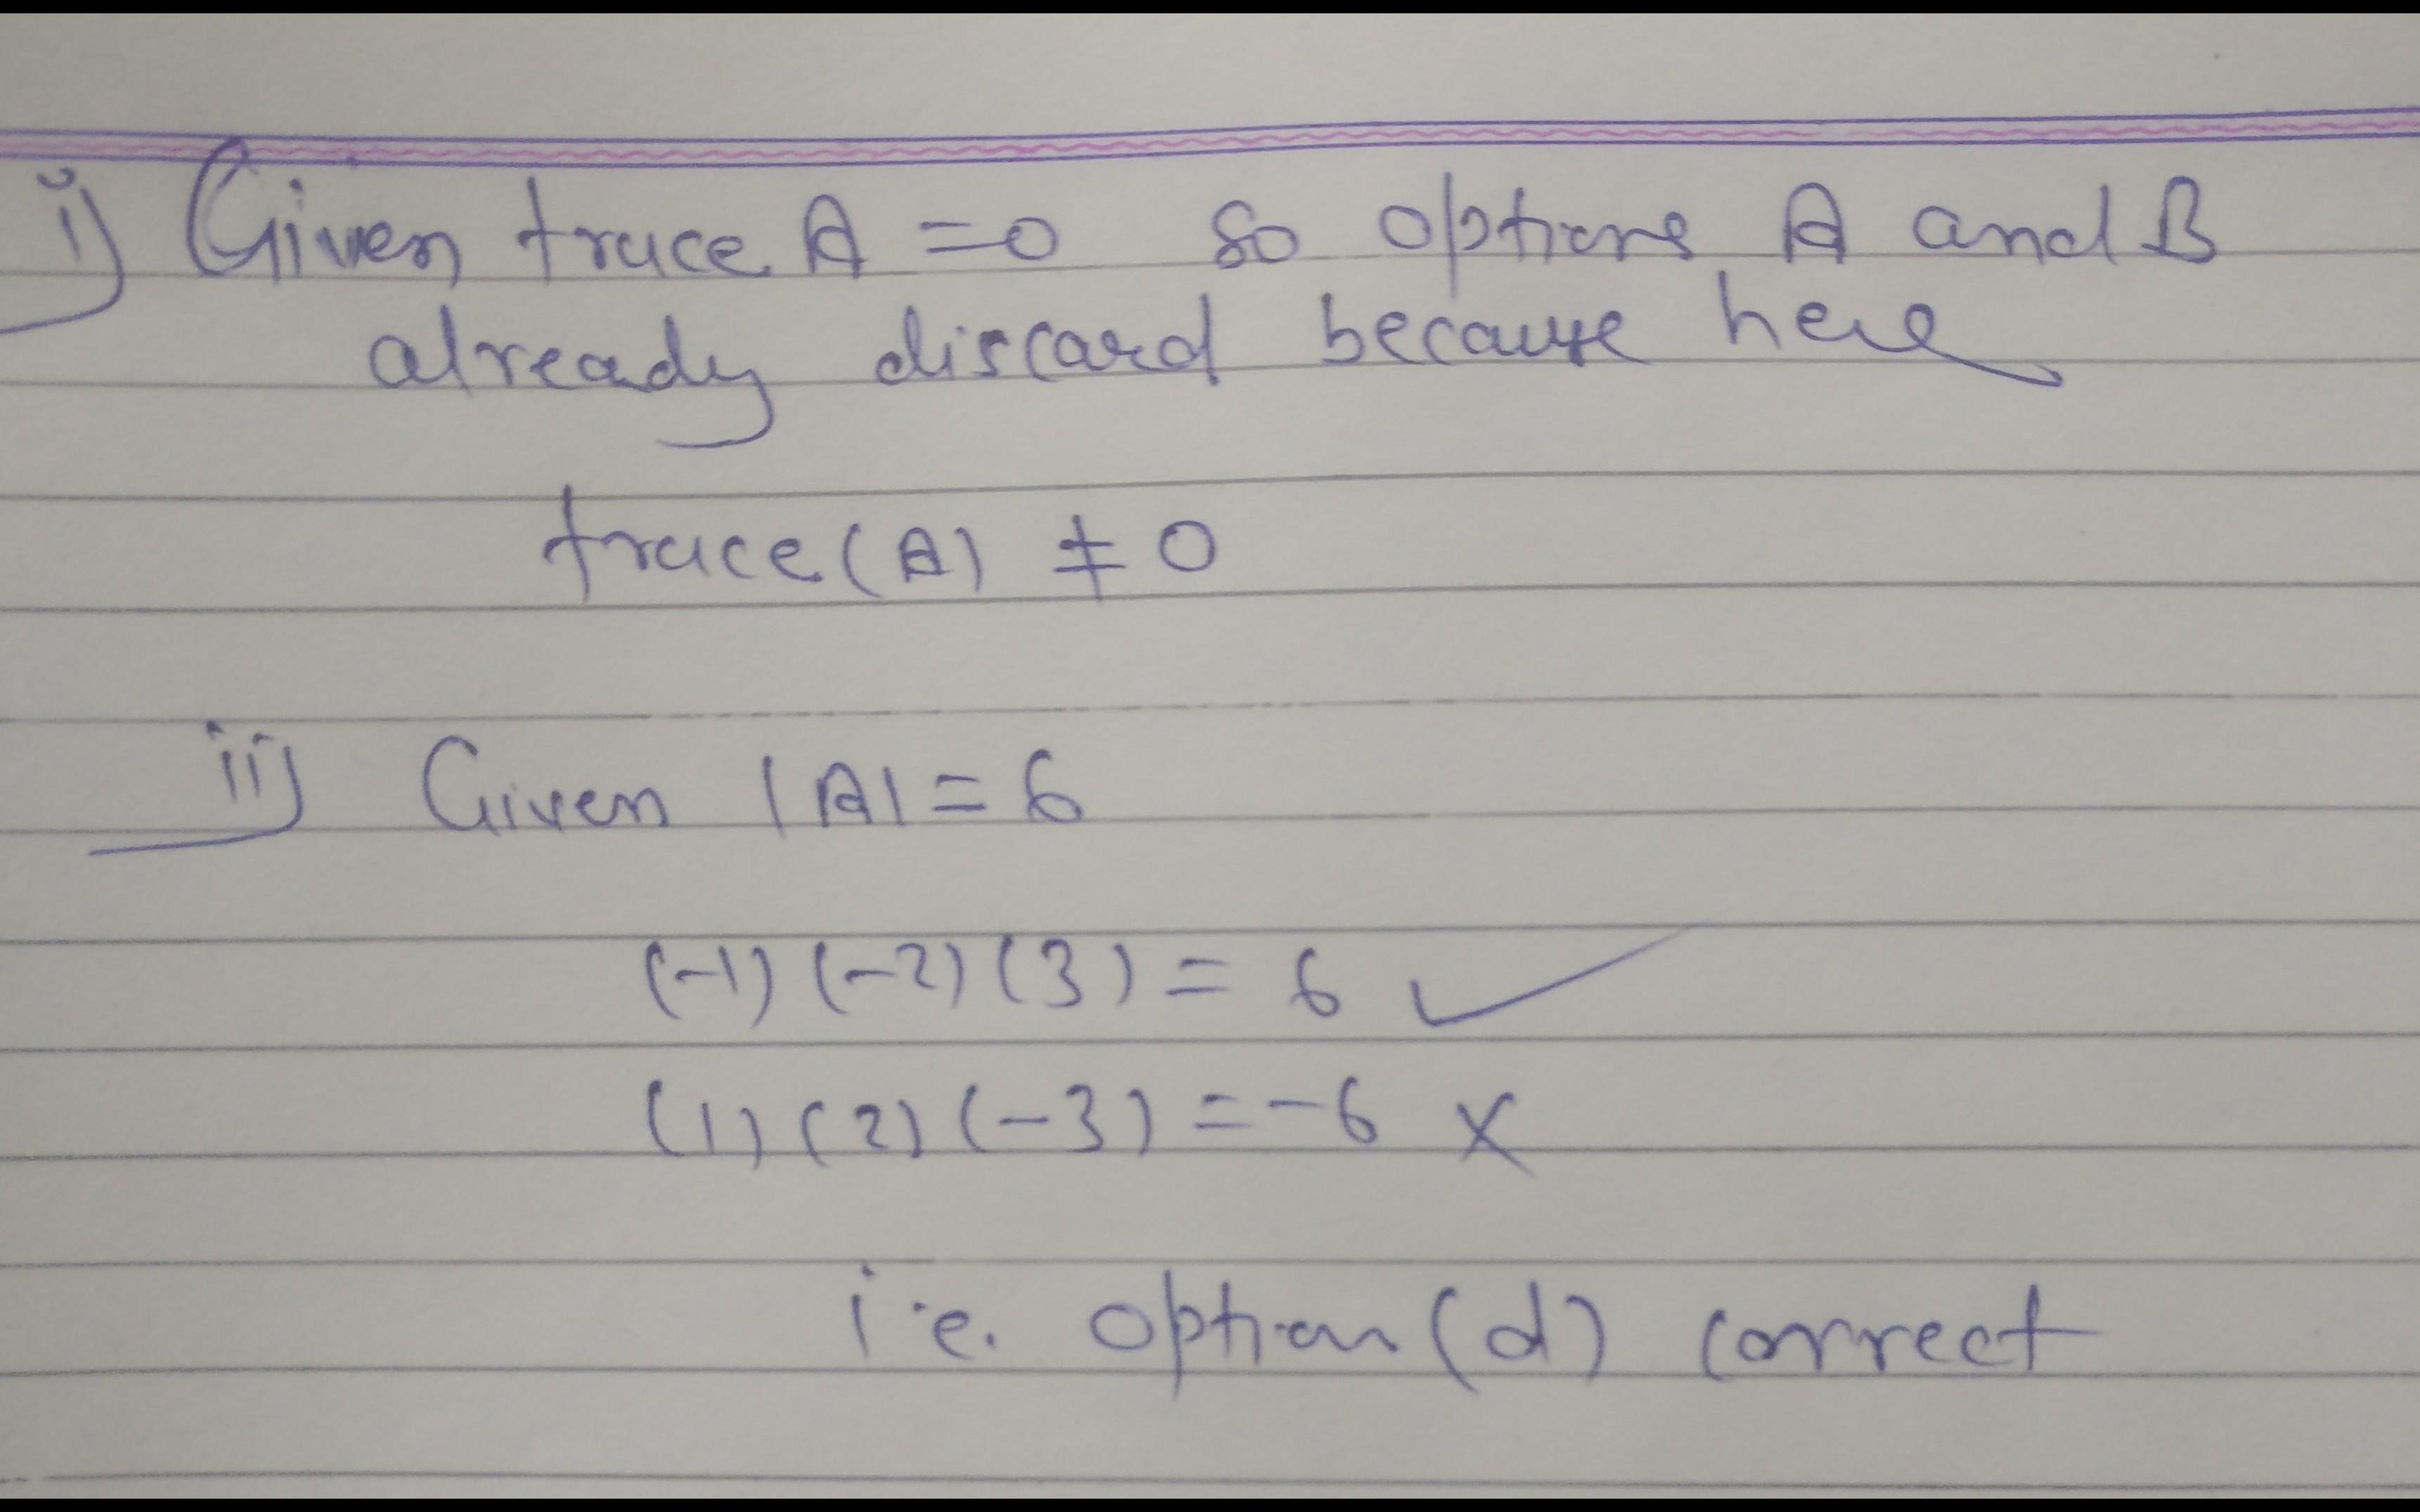 i) Given trace A = 0 So options A and B
already discard because here
trace(A) ≠ 0
ii) Given |A| = 6
(-1) (-2) (3) = 6 ✓
(1) (2) (-3) = -6 ×
i.e. option (d) correct